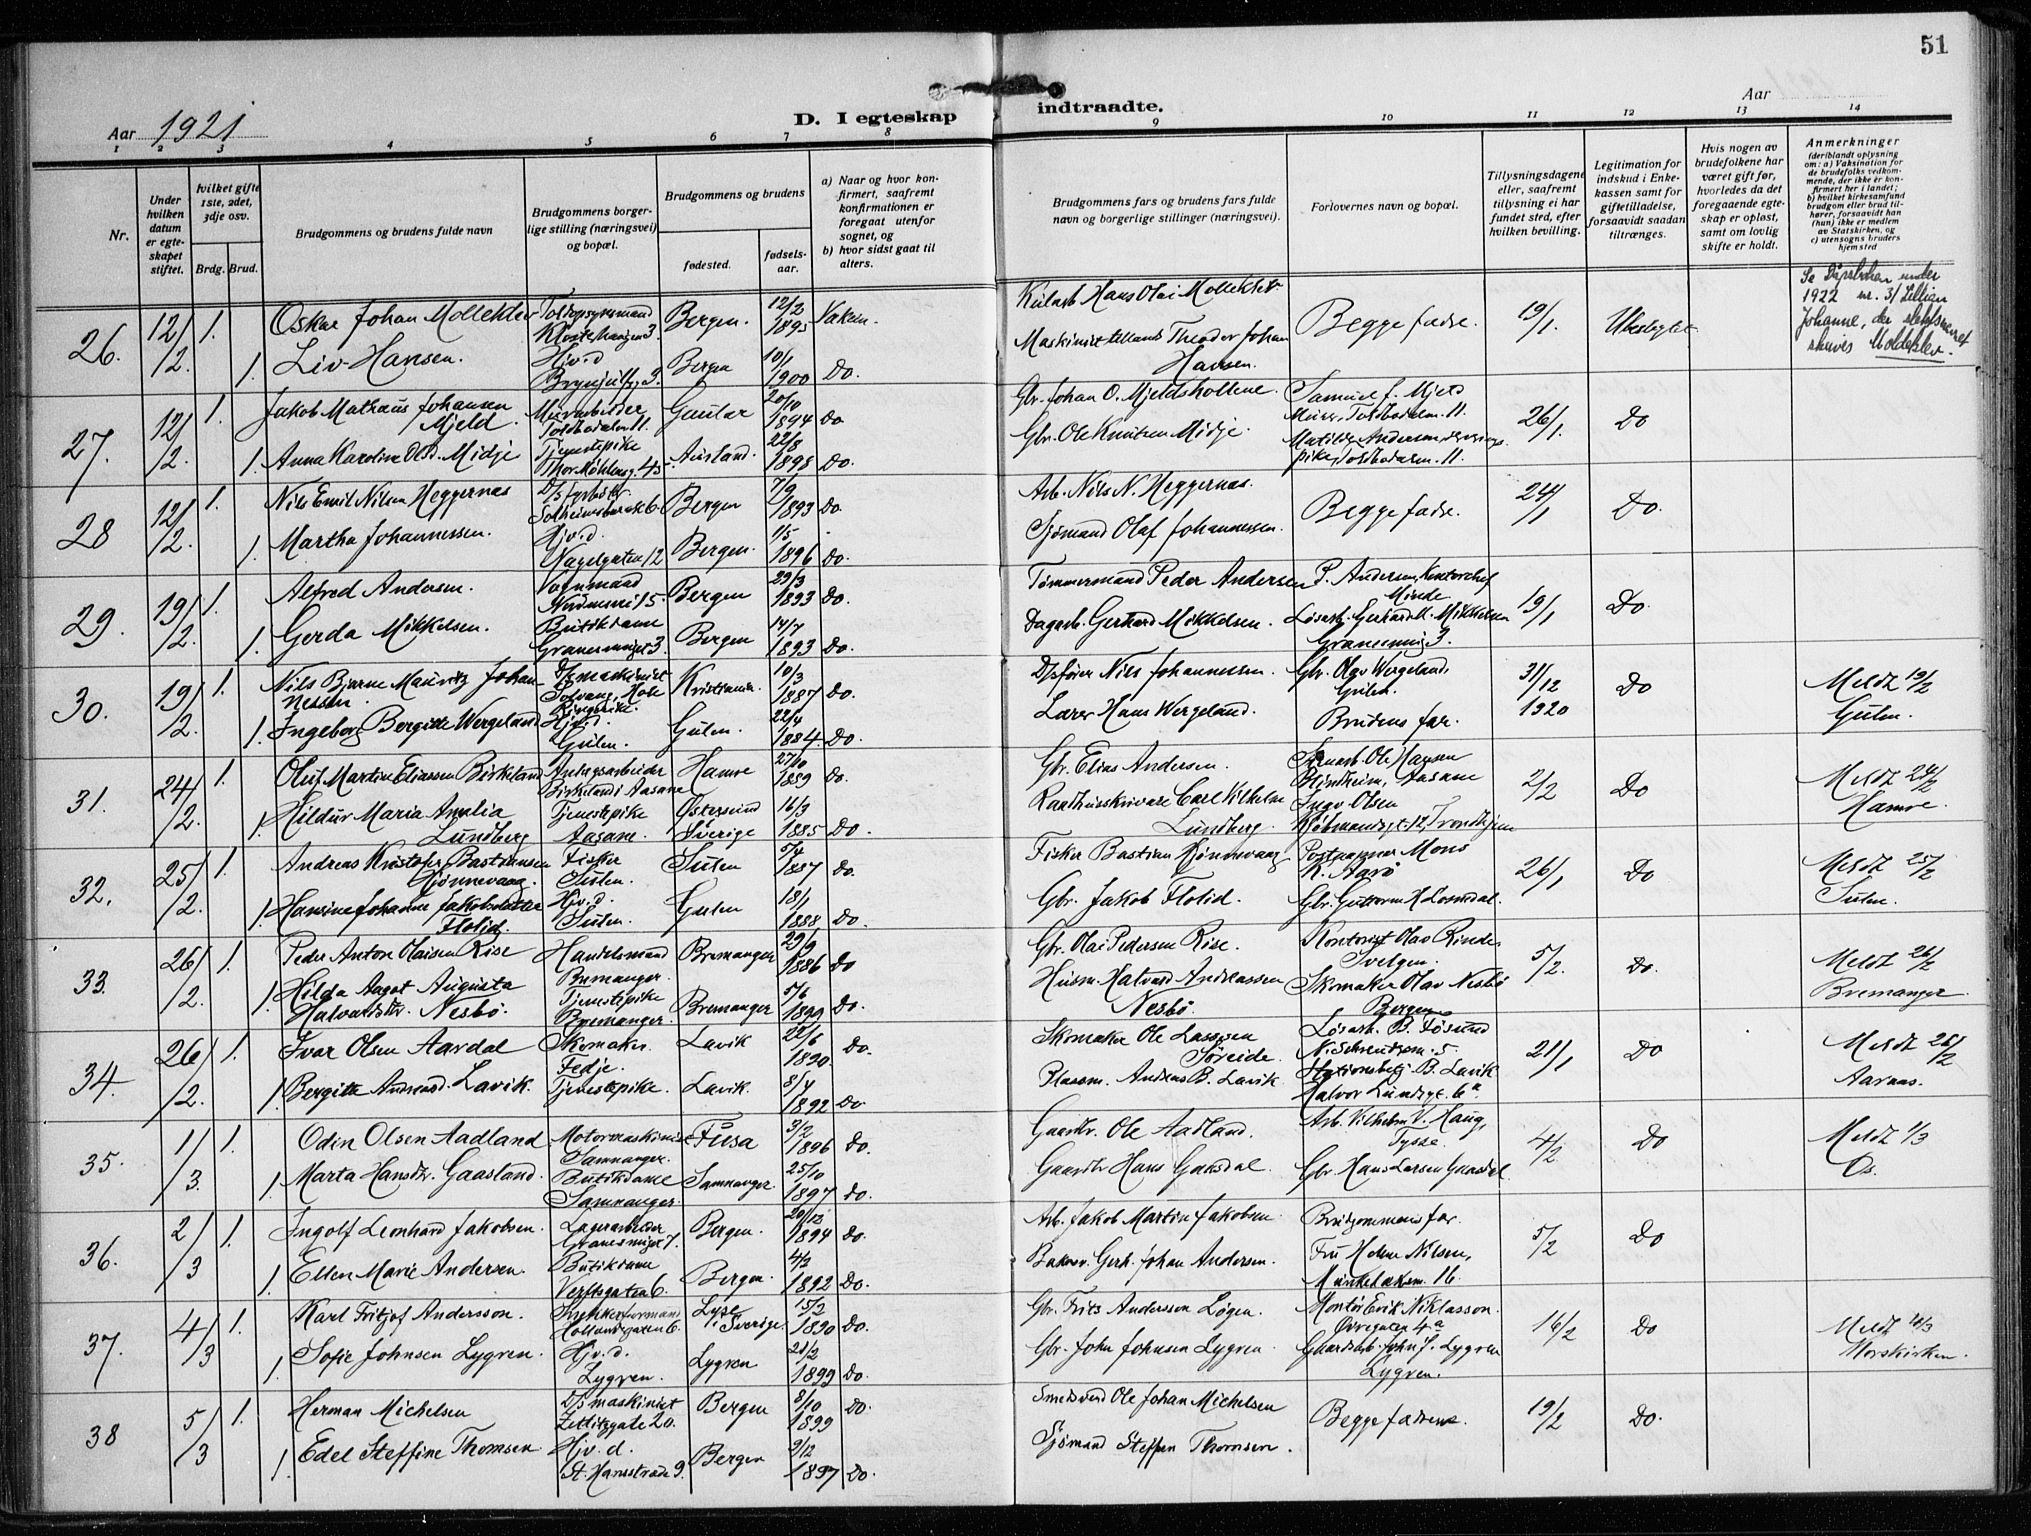 51
Aar 1921
D. I egteskap indtraadte.
Aar
1 2 3 4 5 6 7 8 9 10 11 12 13 14
Nr.
Under hvilken datum er egteskapet stiftet.
hvilket gifte 1ste, 2det, 3dje osv.
Brdg. Brud.
Brudgommens og brudens fulde navn
Brudgommens borgerlige stilling (næringsvei) og bopæl.
Brudgommens og brudens
fødested.
fødselsaar.
a) Naar og hvor konfirmert, saafremt konfirmationen er foregaat utenfor sognet, og
b) hvor sidst gaat til alters.
Brudgommens fars og brudens fars fulde navn og borgerlige stillinger (næringsvei).
Forlovernes navn og bopæl.
Tillysningsdagene eller, saafremt tillysning ei har fundet sted, efter hvilken bevilling.
Legitimation for indskud i Enkekassen samt for giftetilladelse, forsaavidt saadan tiltrænges.
Hvis nogen av brudefolkene har været gift før, hvorledes da det foregaaende egteskap er opløst, samt om lovlig skifte er holdt.
Anmerkninger
(deriblandt oplysning om: a) Vaksination for de brudefolks vedkommende, der ikke er konfirmert her i landet; b) hvilket kirkesamfund brudgom eller brud tilhører, forsaavidt han (hun) ikke er medlem av Statskirken, og c) utensogns bruders hjemsted
26. 12/2. 1. Oskar Johan Mollekleiv Bergen. 12/2 1895 Vaksin. Hans Olai Begge fædre. 19/1. Ubeslegtet
1. Liv Hansen. Hjv. d 3. Bergen 10/1 1900 Do. Maskinist Theodor Johan Hansen.
Se under 1922 nr. 31 Lillian Johanne, der skrives Moldeklev.
27. 12/2. 1. Jakob Mathæus Johansen Mjeld. Murarbeider Toldbodalm 11. Gaular 20/10 1894 Do Gbr. Johan O. Mjeldsholtene. Samuel J. Mjeld Murer, Toldbodalm. 11. 26/1. Do
1. Anna Karoline Olsd. Midje Tjenestepike Thor Møhlensg. 45. 22/8 1898 Do. Gbr. Ole Knutsen Midje. Matilde Andersen, pike, Toldbodalm. 11.
28 12/2. 1. Nils Emil Nilsen Heggernæs Solheims 6. Bergen 7/9 1893 Do. Arb. Nils N. Heggernæs. Begge fædre. 24/1 Do.
1. Martha Johannessen. Hjv. d. Nagelgaten 12 Bergen. 1/5 1896 Do. Sjømand Olaf Johannessen.
29. 19/2. 1. Alfred Andersen. Vognmand 15. Bergen 29/3 1893 Do. Tømmermand Peder Andersen P. Andersen, Kontorchef Minde 19/1 Do.
1. Gerda Mikkelsen. Butikdame 3. Bergen 14/7 1893 Do. Dagarb. Gerhard Mikkelsen. Løsarb. Gerhard M. Mikkelsen 3.
30. 19/2. 1. Nils Bjarne Mauritz Johannessen D/s maskinist Solvang, Hole Ringerike. Kristiania 10/3 1887 Do. D/s fører Nils Johannessen. Gbr. Olav Wergeland, Gulen. 31/12 1920 Do Meldt 19/2 Gulen.
1. Ingeborg Bergitte Wergeland Hjv. d. Gulen. Gulen. 22/4 1884. Do. Lærer Hans Wergeland. Brudens far.
31. 24/2. 1. Oluf Martin Eliassen Birkeland Anlægsarbeider Birkeland i Aasane Hamre 27/10 1889 Do. Gbr. Elias Andersen. Ole Hansen Blindheim, Aasane 2/2 Do Meldt 24/2 Hamre.
1. Hildur Maria Amalia Lundberg Tjenestepike Aasane. Østersund Sverige 16/3 1885 Do. Raadhusskriver Carl Vilhelm Lundberg. Ingv Olsen Kjøbmandsgt. 12, Trondhjem
32. 25/2. 1. Andreas Kristofer Bastiansen Hjønnevaag. Fisker Sulen. Sulen 5/4 1887 Do. Fisker Bastian Hjønnevaag. Postaapner Mons K. Aarø 26/1 Do Meldt 25/2 Sulen.
1. Hansine Johanne Jakobsdatter Flolid. Hjv. d. Sulen. Gulen 18/1 1888 Do. Gbr. Jakob Flolid. Gbr. Guttorm H Losnedal.
33. 26/2. 1. Peder Anton Olaisen Rise Handelsmand Bremanger. Bremanger 29/9 1886 Do Gbr. Olai Pedersen Rise. Kontorist Olav Rinde Svelgen. 5/2. Do. Meldt 26/2 Bremanger.
1. Hilda Aagot Augusta Halvardsdtr. Nesbø. Tjenestepike Bremanger. Bremanger 5/6 1899 Do. Husm. Halvard Andreassen Nesbø. Skomaker Olav Nesbø Bergen
34. 26/2. 1. Ivar Olsen Aardal Skomaker Fedje. Lavik 22/6 1890 Do. Skomaker Ole Lassesen Søreide. Løsarb. B. Føsund 5. 21/1 Do Meldt 26/2 Aarnæs.
1. Bergitte Andreasd. Lavik. Tjenestepike. Lavik. 8/4 1892 Do Plassm. Andreas B. Lavik Stationsbetj. B. Lavik Halvor Lundsgt. 6a.
35. 1/3. 1. Odin Olsen Aadland Motormaskinist Samnanger. Fusa 3/2 1896 Do. Gaardbr. Ole Aadland. Arb. Vilhelm V. Haug, Tysse. 4/2 Do Meldt 1/3 Os.
1. Marta Hansdtr. Gaasland. Butikdame Samnanger. Samnanger. 25/10 1897 Do. Gaardbr Hans Gaasdal. Gbr. Hans Larsen Gaasdal
36. 2/3 1. Ingolf Leonhard Jakobsen. Lagerarbeider 7. Bergen. 20/12 1894 Do. Arb. Jakob Martin Jakobsen Brudgommens far. 5/2 Do
1. Ellen Marie Andersen. Butikdame Verftsgaten 6. Bergen. 4/2 1892 Do. Gerh. Johan Andersen. Fru Helene Nilsen, 16.
37. 4/3 1. Karl Fritjof Andersson. Snekkerformand Hollendergaten 6. Lyse, Sverige. 15/2 1890 Do. Gbr. Frits Andersson Løgen. Montør Erik Niklasson. Øvregaten 4a 16/2 Do Meldt 10/3 Korskirken.
1. Sofie Johnsen Lygren. Hjv. d. Lygren. Lygren 21/2 1899 Do. Gbr. John Johnsen Lygren. Gaardbr. John J. Lygren Lygren.
38 5/3 1. Herman Michelsen D/s maskinist Zetlitzgate 20. Bergen 8/10 1899 Do. Smedsvend Ole Johan Michelsen Begge fædrene. 19/2 Do.
1. Edel Steffine Thomsen. Hjv. d. St. Hansstræde 9. Bergen 2/12 1897 Do. Sjømand Steffen Thomsen.